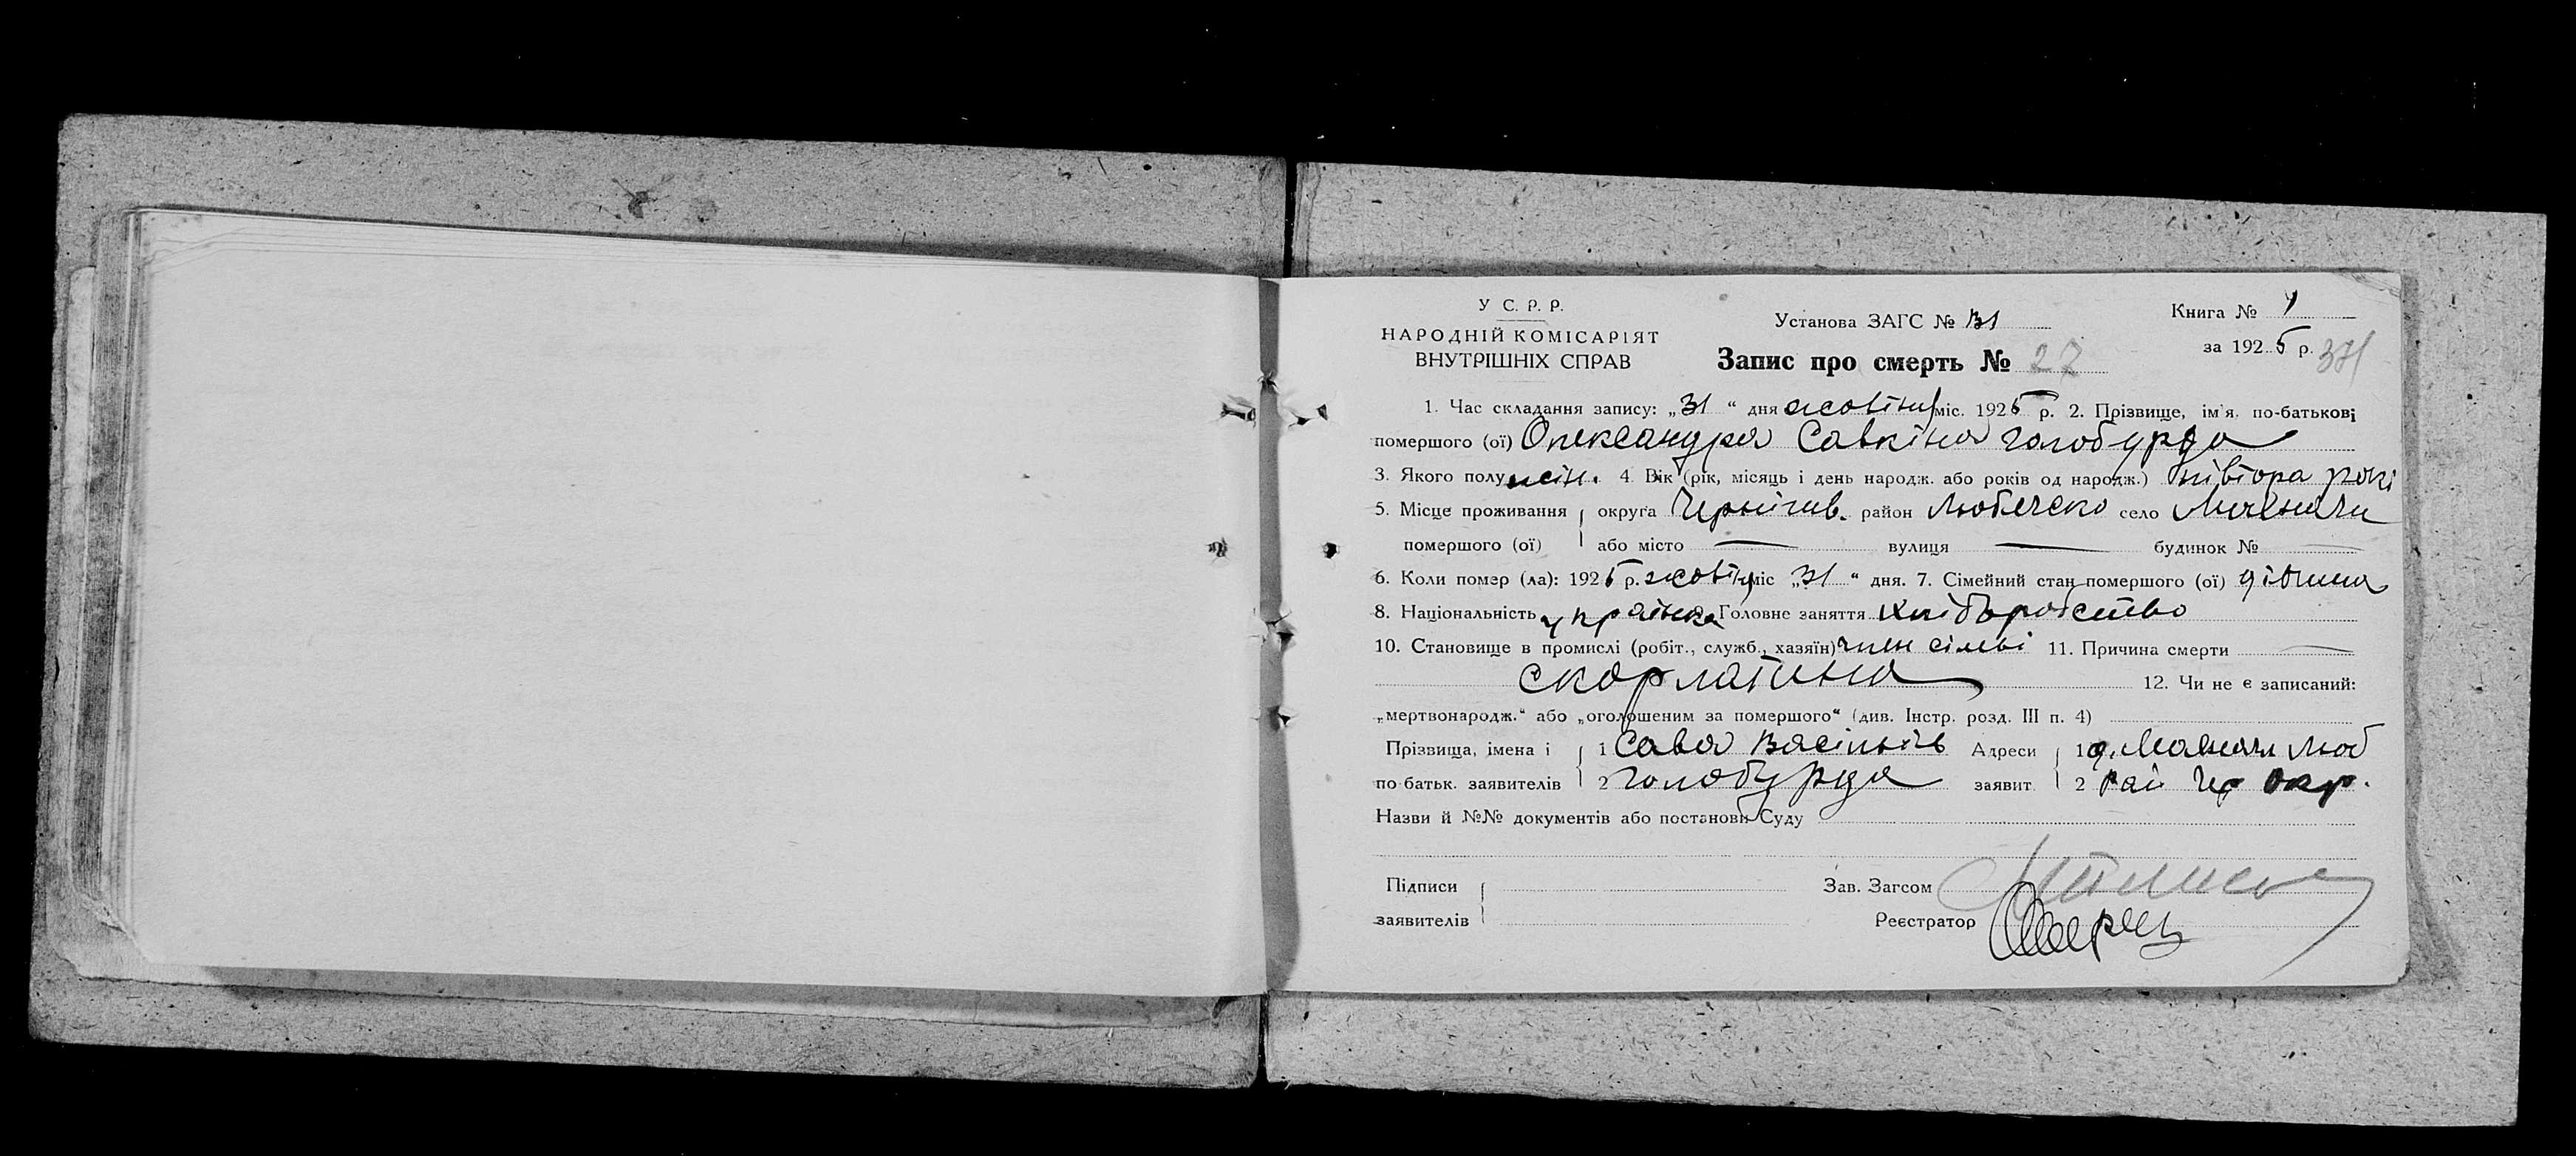 У С. Р. Р.
НАРОДНІЙ КОМІСАРІЯТ
ВНУТРІШНІХ СПРАВ
Установа ЗАГС № 31
Запис про смерть № 27
Книга № 1
за 1925 р. 371
1. Час складання запису: „31“ дня жовтня міс. 1925 р. 2. Прізвище, ім'я, по-батькові
помершого (ої) Олександра Савкіна Голобурда
3. Якого полу жін. 4. Вік (рік, місяць і день народж. або років од народж.) півтора рокі
5. Місце проживання округа Чернігів. район Любечско село
помершого (ої) або місто — вулиця — будинок № —
6. Коли помер (ла): 1925 р. жовтня міс „31“ дня. 7. Сімейний стан помершого (ої) дівчина
8. Національність українка Головне заняття хліборобство
10. Становище в промислі (робіт., служб., хазяїн) член сімьі 11. Причина смерти —
скорлатина 12. Чи не є записаний:
„мертвонародж.“ або „оголошеним за помершого“ (див. Інстр. розд. III п. 4)
Прізвища, імена і 1 Сава Васільів Адреси 1 Люб
по батьк. заявителів 2 Голобурда заявит. 2 рай Чер окр.
Назви й №№ документів або постанови Суду
Підписи
заявителів
Зав. Загсом
Реєстратор